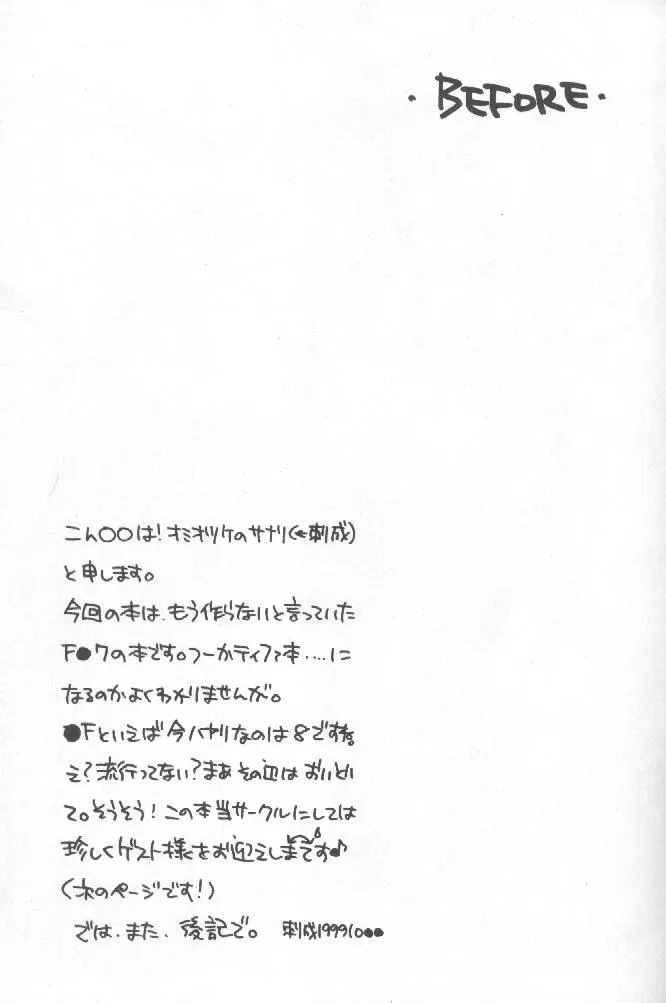 ・BEFORE・
こん〇〇は!オミオツケのサナリ(←刺成)
と申します。
今回の本は、もう作らないと言っていた
F●7の本です。つーかティファ本‥‥に
なるのかよくわかりませんが。
●Fといえば今ハヤリなのは8ですね。
え?流行ってない?まあその辺はおいとい
て。そうそう!この本当サークルにしては
珍しくゲスト様をお迎えしてます♪
(次のページです!)
では、また、後記で。 刺成199910●●